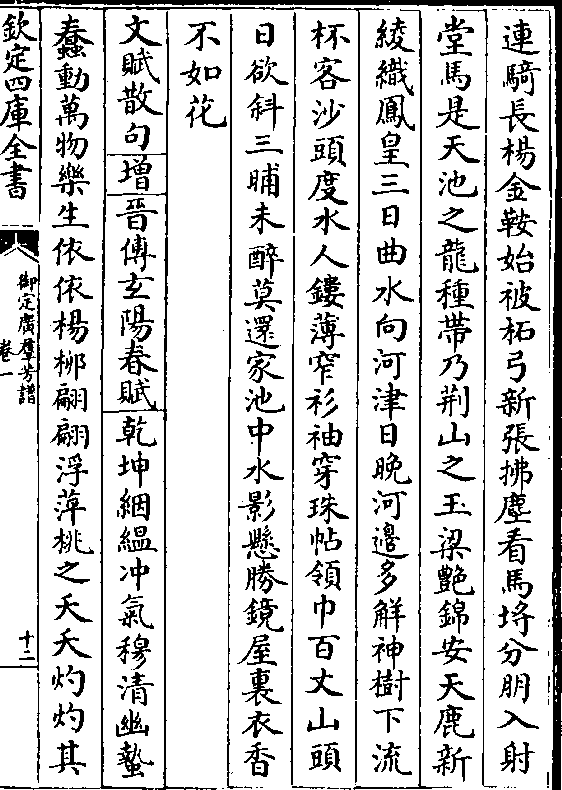 連騎長楊金鞍始被柘弓新張拂塵看馬埒分朋入射
堂馬是天池之龍種帶乃荆山之玉梁艷錦安天鹿新
綾織鳳皇三日曲水向河津日晚河邊多解神樹下流
杯客沙頭度水人鏤薄窄衫袖穿珠帖領巾百丈山頭
日欲斜三晡未醉莫還家池中水影懸勝鏡屋裏衣香
不如花
文賦散句增晉傅玄陽春賦乾坤絪縕冲氣穆清幽蟄
蠢動萬物樂生依依楊栁翩翩浮萍桃之夭夭灼灼其
欽定四庫全書
御定廣羣芳譜
卷一
十二